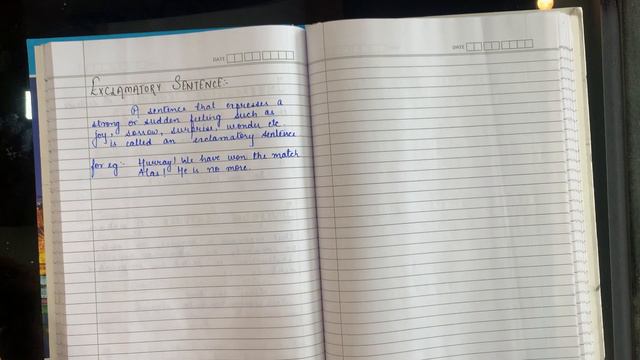 DATE
DATE
EXCLAMATORY SENTENCE:-
A sentence that expresses a
strong or sudden feeling such as
joy, sorrow, surprise, wonder etc.
is called an exclamatory sentence
for eg:- Hurray! We have won the match
Alas! He is no more.